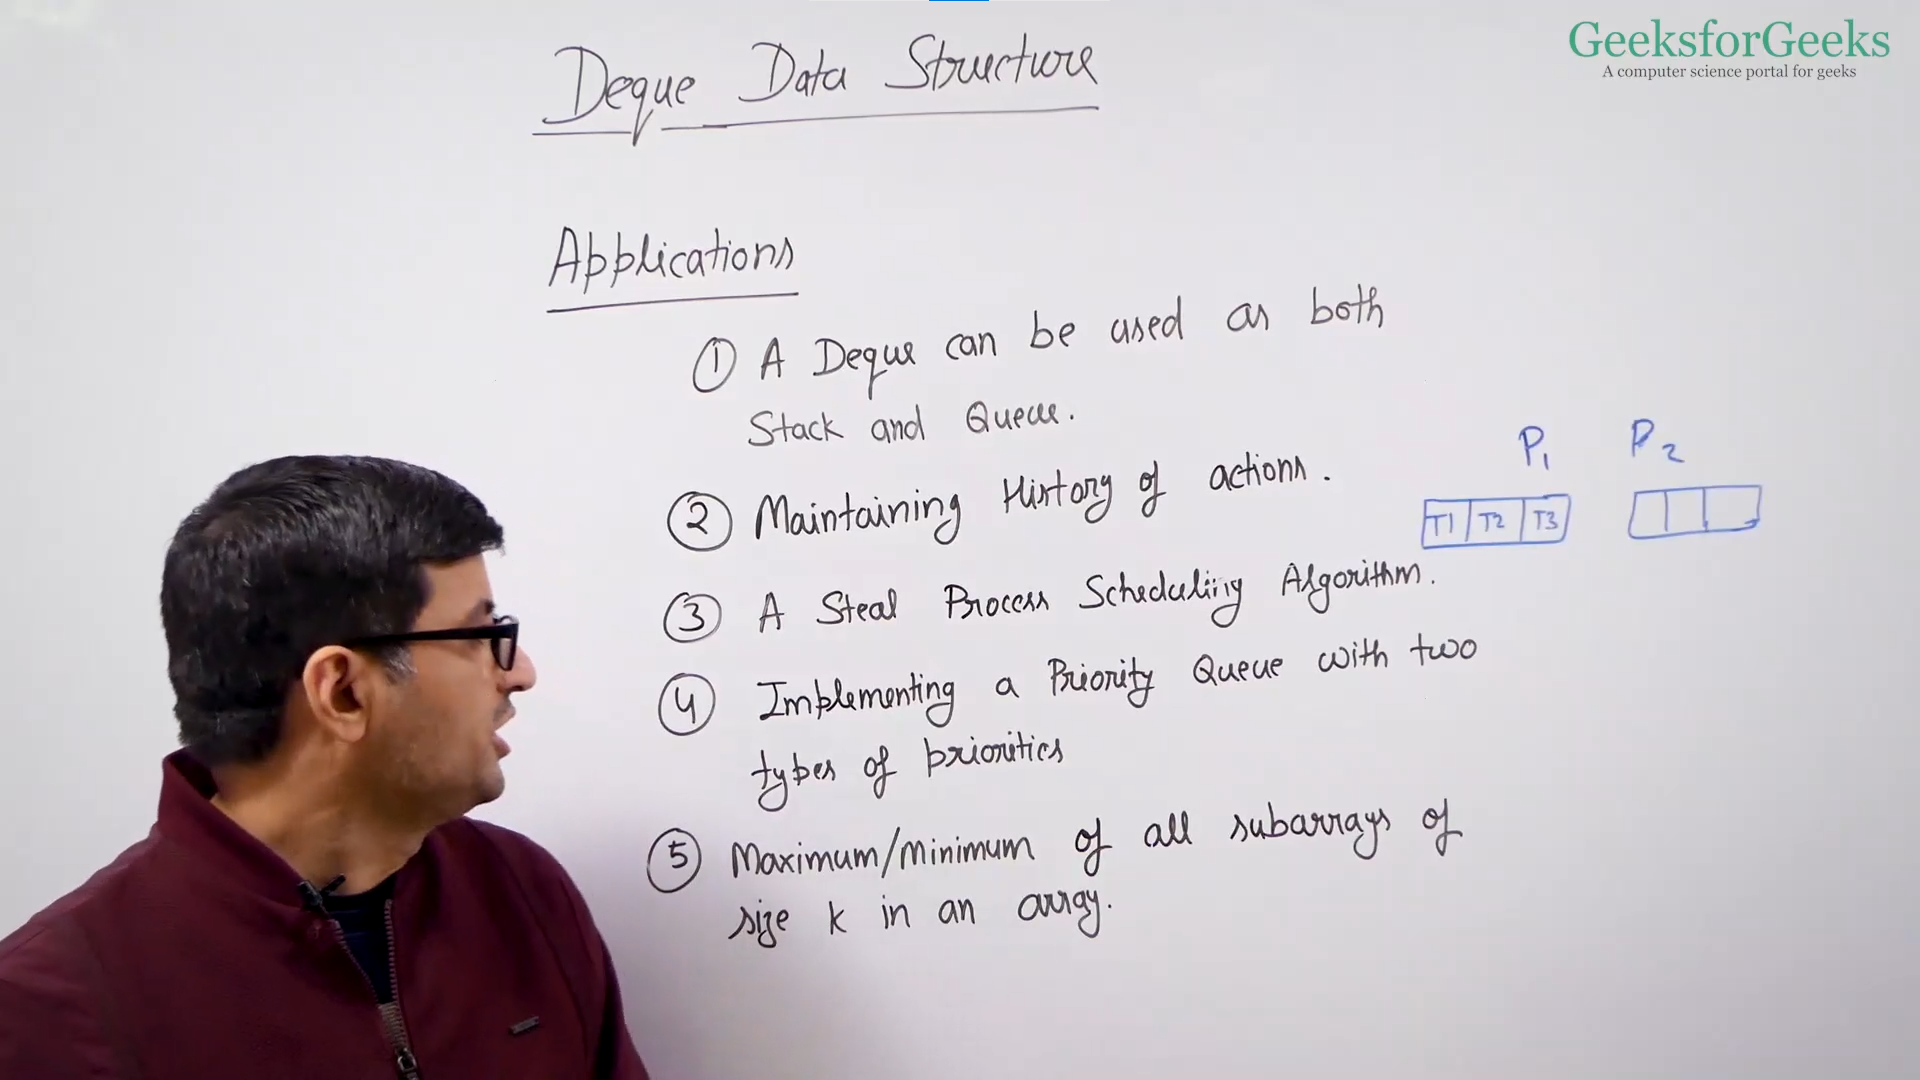 GeeksforGeeks
A computer science portal for geeks
Deque Data Structure
Applications
1 A Deque can be used as both
Stack and Queue.
2 Maintaining History of actions.
P1 P2
T1 T2 T3
3 A Steal Process Scheduling Algorithm.
4 Implementing a Priority Queue with two
types of priorities
5 Maximum/Minimum of all subarrays of
size k in an array.